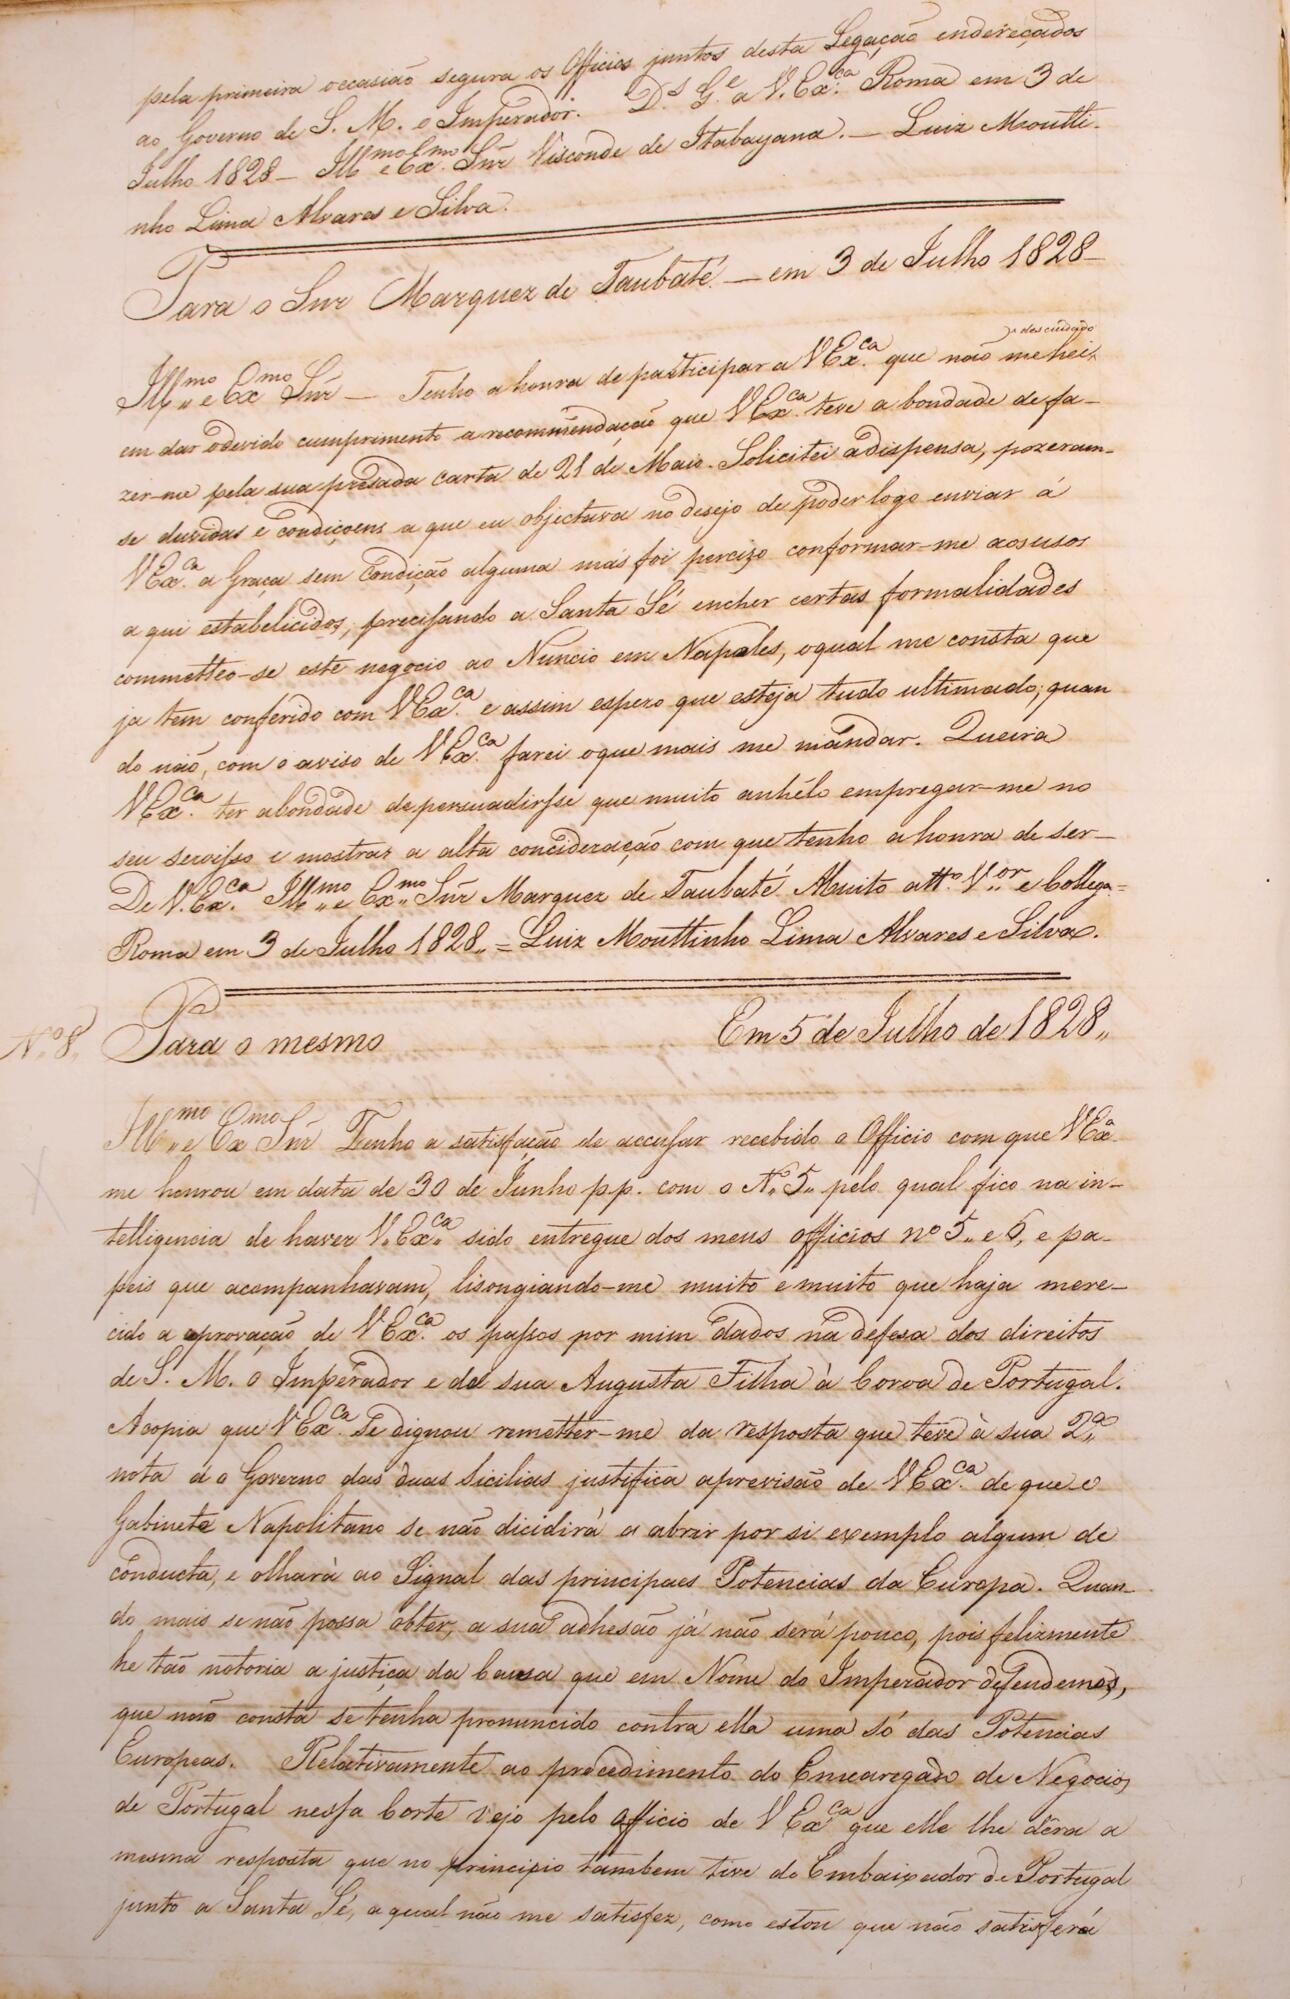 pela primeira occasião segura os Officios juntos desta Legação endereçados
ao Governo de S. M. o Imperador. D.s G.e a V. Ex.ca Roma em 3 de
Julho 1828 – Ill.mo e Ex.mo Snr̃ Visconde de Itabayana. – Luiz Moutti-
nho Lima Alvares e Silva.
Para o Snr Marquez de Taubaté. – em 3 de Julho 1828 –
descuidado
Ill.mo e Ex.mo Snr̃ – Tenho a honra de participar a V Ex.ca que não me hei
em dar o devido cumprimento a recommendação que V Ex.ca teve a bondade de fa-
zer-me pela sua presada carta de 21 de Maio. Solicitei a dispensa, pozeram-
se duvidas e condiçoens a que eu objectava no desejo de poder logo enviar á
V Ex.ca a Graça sem condição alguma mas foi percizo conformar-me aos usos
a qui estabelicidos; precisando a Santa Sé encher certas formalidades
commetteo-se este negocio ao Nuncio em Napoles, o qual me consta que
ja tem conferido com V Ex.ca e assim espero que esteja tudo ultimado; quan
do não, com o aviso de V Ex.ca farei o que mais me mandar. Queira
V Ex.ca ter a bondade de persuadirsse que muito anhélo empregar-me no
seu servisso e mostrar a alta concideração com que tenho a honra de ser –
De V. Ex.ca Ill.mo e Ex.mo Snr̃ Marquez de Taubaté Muito att.o V.or e Collega =
Roma em 3 de Julho 1828 „ = Luiz Mouttinho Lima Alvares e Silva.
N.o 8 „ Para o mesmo Em 5 de Julho de 1828 „
Ill.mo e Ex.mo Snr̃ Tenho a satisfação de accusar recebido o Officio com que V Ex.a
me honrou em data de 30 de Junho p.p. com o N.o 5 „ pelo qual fico na in-
telligencia de haver V. Ex.ca sido entregue dos meus officios no 5 „ e 6, e pa-
peis que acompanhavam, lisongiando-me muito e muito que haja mere-
cido a aprovação de V Ex.ca os passos por mim dados na defesa dos direitos
de S. M. o Imperador e da sua Augusta Filha à Coroa de Portugal.
A copia que V Ex.ca se dignou remetter-me da resposta que teve à sua 2.a
nota a o Governo das duas Sicilias justifica a previsão de V Ex.ca de que o
Gabinete Napolitano se não dicidirá a abrir por si exemplo algum de
conducta, e olhará ao Signal das principaes Potencias da Europa. Quan-
do mais se não possa obter, a sua adhesão já não será pouco, pois felizmente
he tão notoria a justiça da Causa que em Nome do Imperador defendemos,
que não consta se tenha pronuncido contra ella uma só das Potencias
Europeas. Relativamente ao procedimento do Encaregado de Negocios
de Portugal nessa Corte vejo pelo officio de V Ex.ca que elle lhe dera a
mesma resposta que no principio tambem tive do Embaixador de Portugal
junto a Santa Sé, a qual não me satisfez, como estou que não satisferá